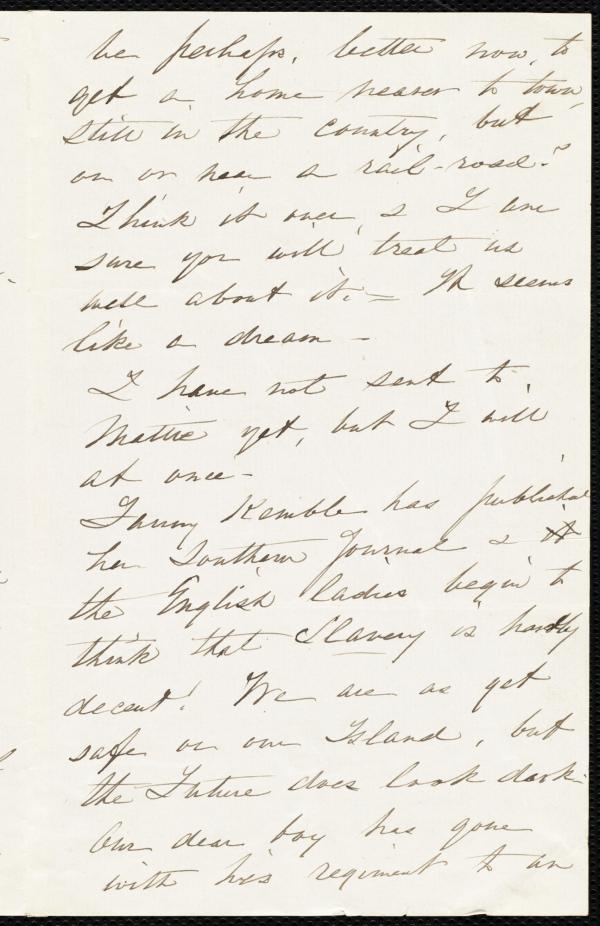 be perhaps, better now, to
get a home nearer to town,
still in the country, but
on or near a rail-road?
Think it over, & I am
sure you will treat us
well about it. — It seems
like a dream —
I have not sent to
Mattie yet, but I will
at once —
Fanny Kemble has published
her Southern Journal &
the English ladies begin to
think that Slavery is hardly
decent! We are as yet
safe on our Island, but
the Future does look dark.
Our dear boy has gone
with his regiment to an